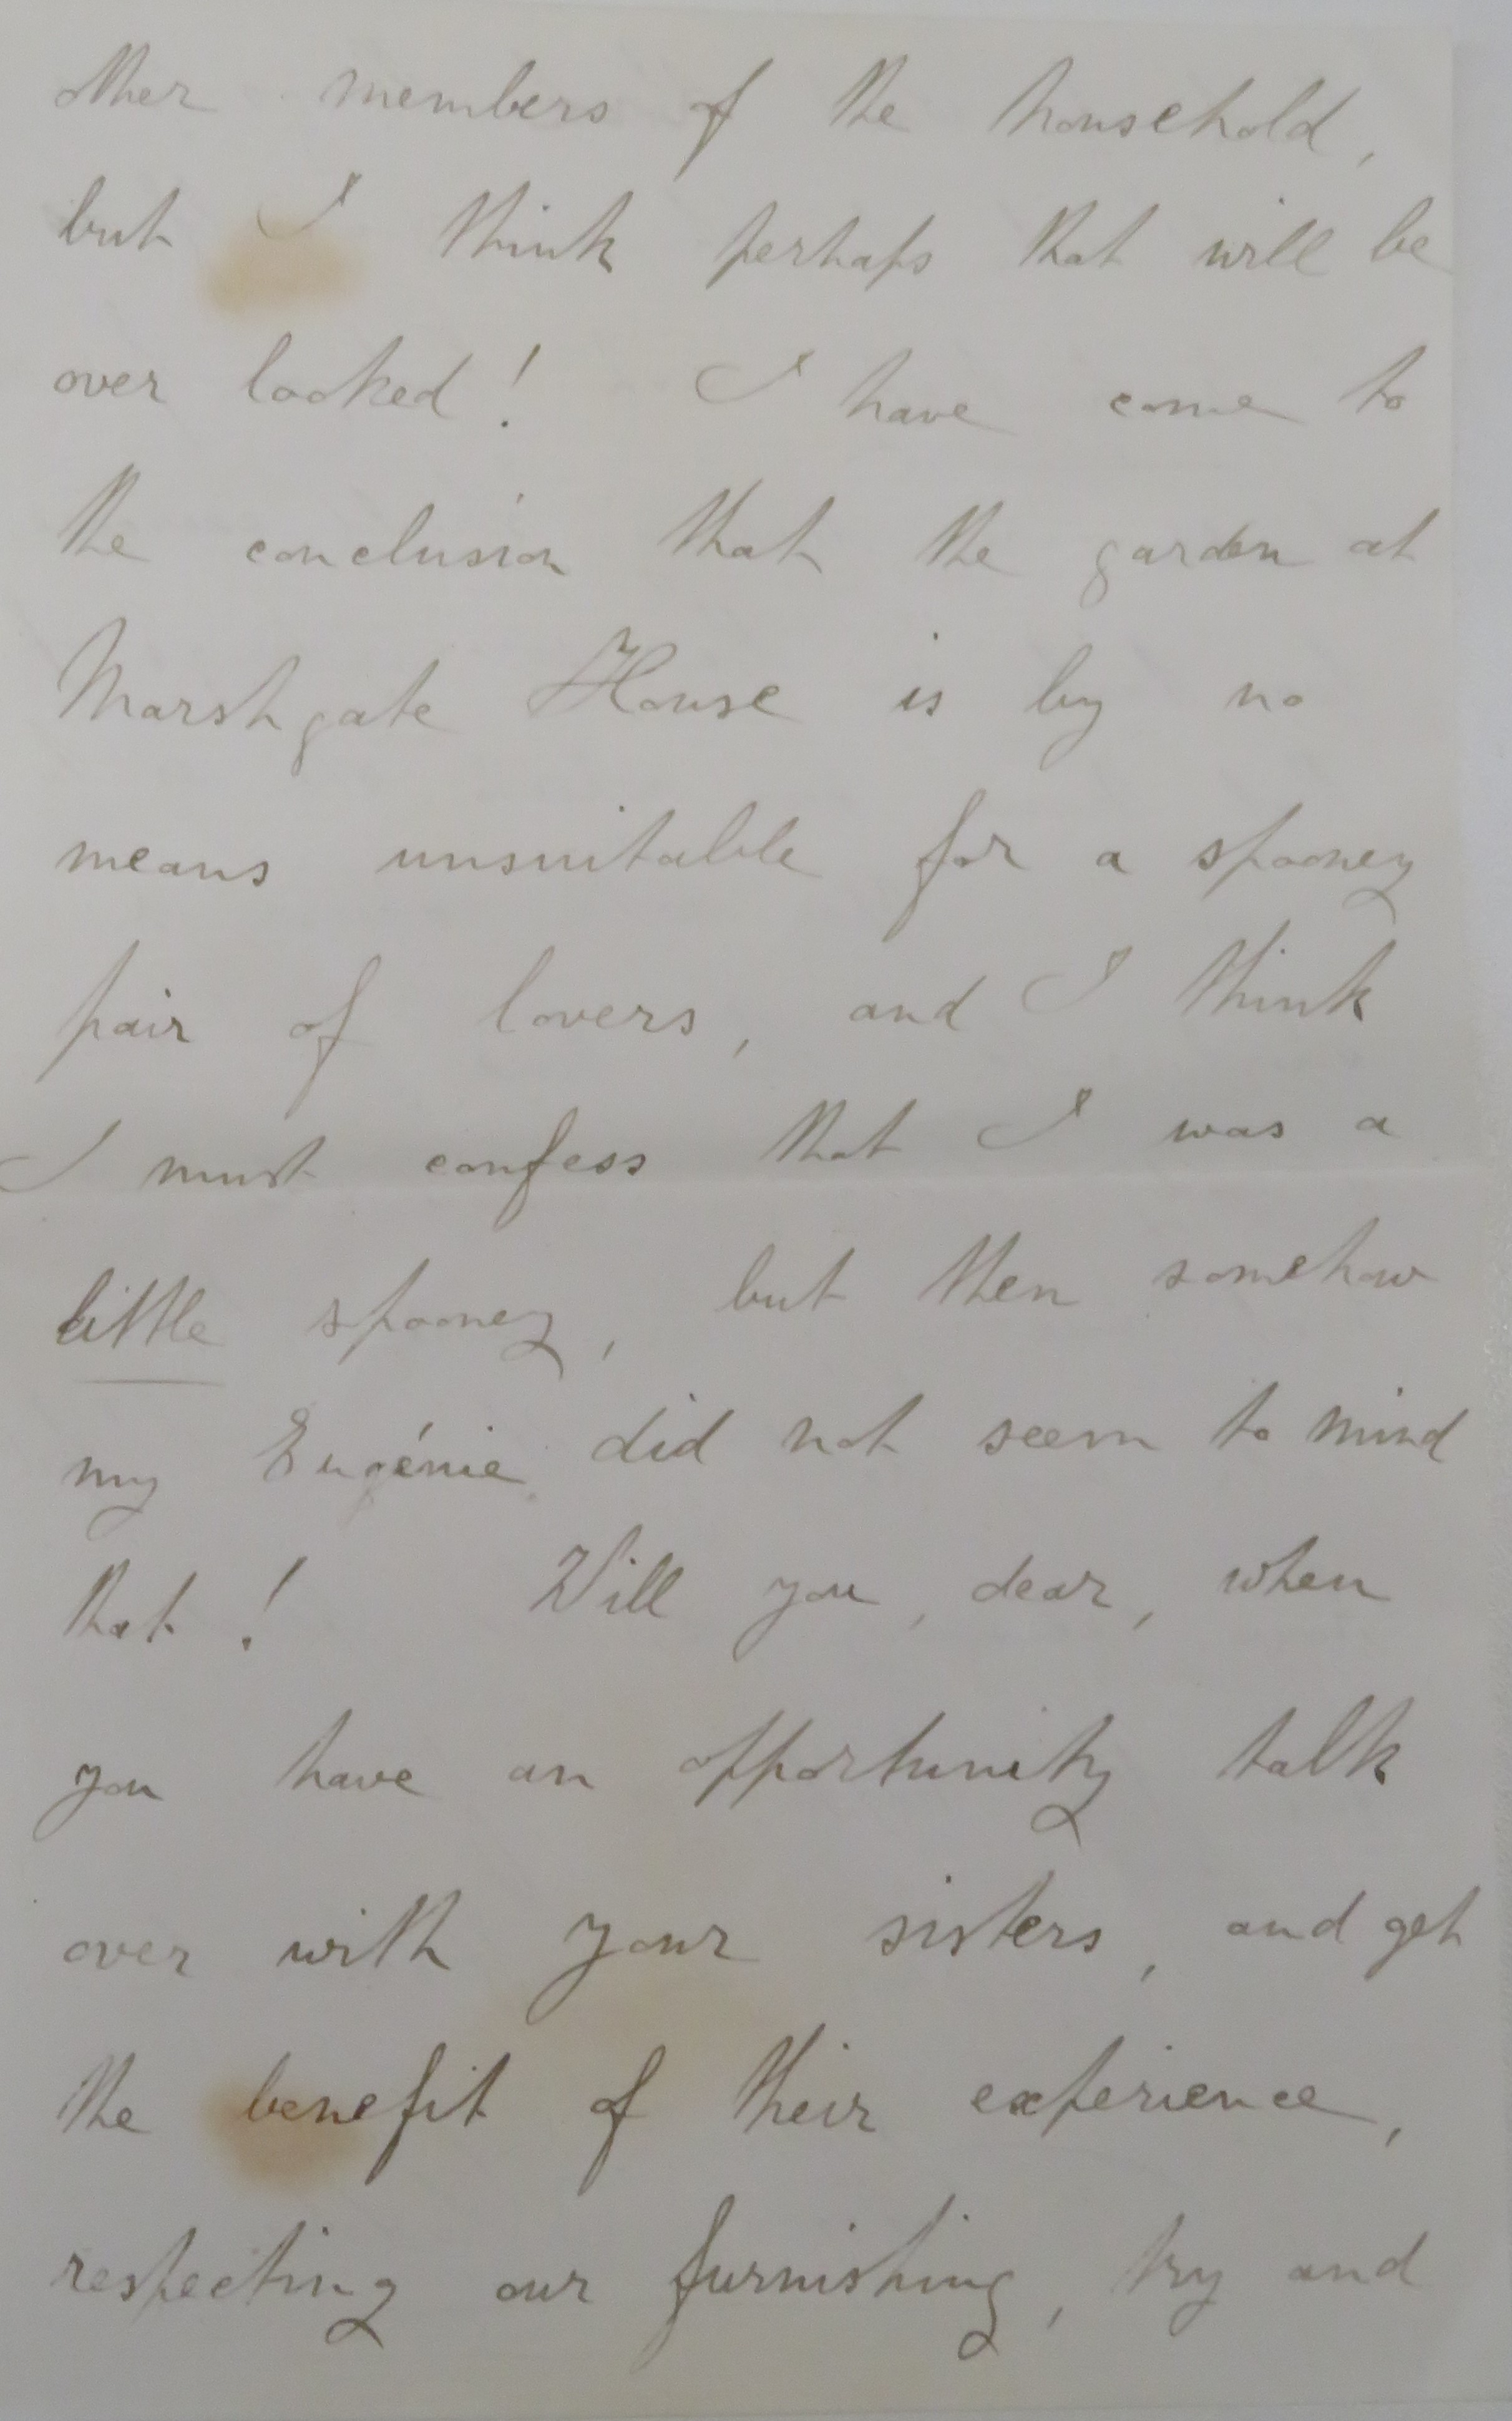 other members of the household,
but I think perhaps that will be
over looked! I have come to
the conclusion that the garden at
Marshgate House is by no
means unsuitable for a spooney
pair of lovers, and I think
I must confess that I was a
little spooney, but then somehow
my Eugénie did not seem to mind
that! Will you, dear, when
you have an opportunity talk
over with your sisters, and get
the benefit of their experience,
respecting our furnishing, try and